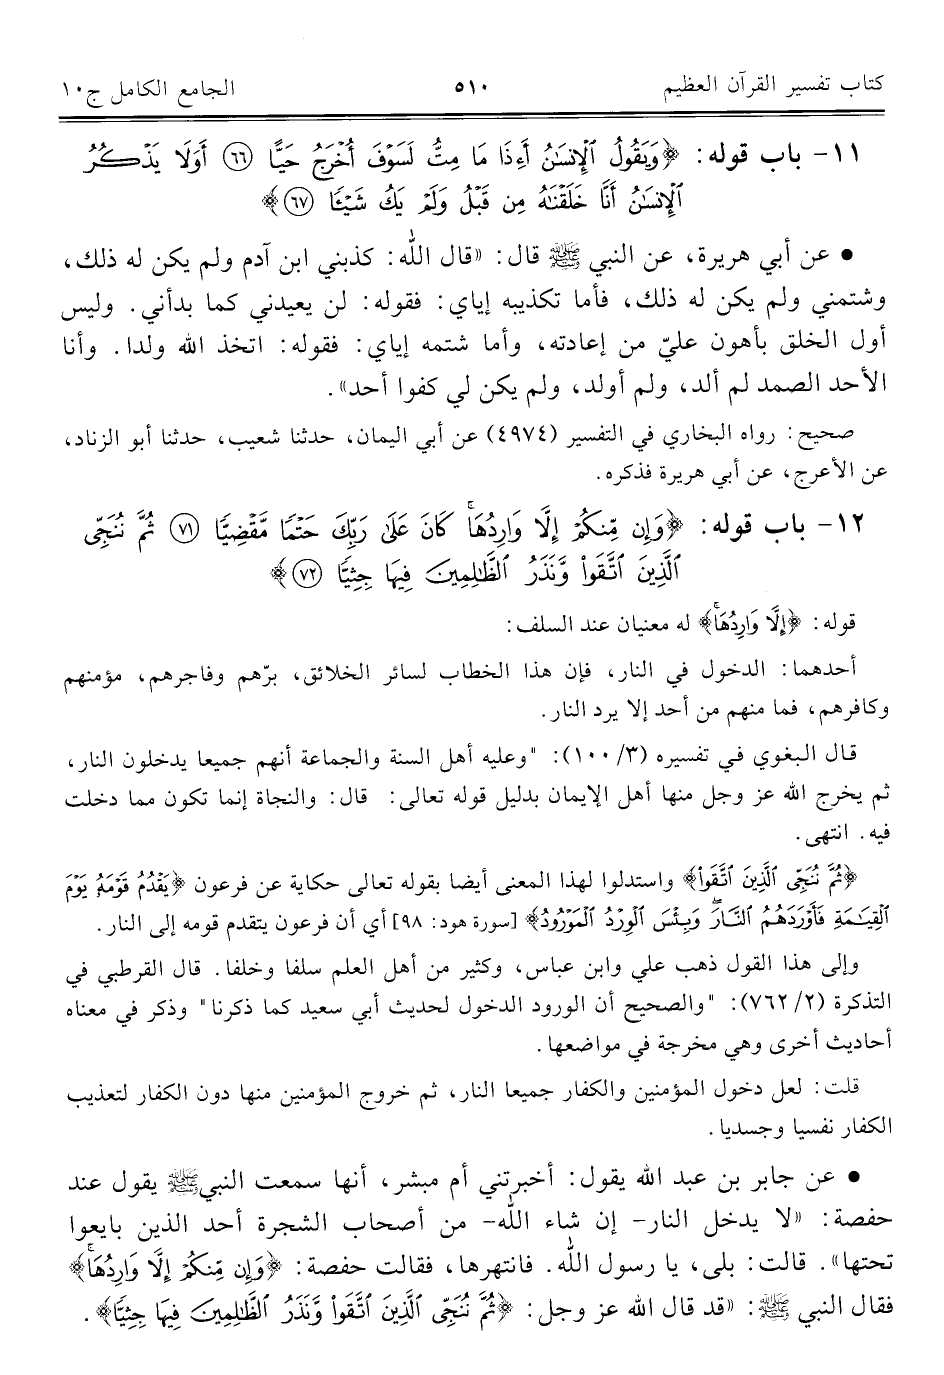 كتاب تفسير القرآن العظيم ٥١٠ الجامع الكامل ج١٠
١١- باب قوله: ﴿وَيَقُولُ ٱلْإِنسَٰنُ أَءِذَا مَا مِتُّ لَسَوْفَ أُخْرَجُ حَيًّا ٦٦ أَوَلَا يَذْكُرُ
ٱلْإِنسَٰنُ أَنَّا خَلَقْنَٰهُ مِن قَبْلُ وَلَمْ يَكُ شَيْـًٔا ٦٧﴾
• عن أبي هريرة، عن النبي ﷺ قال: «قال الله: كذبني ابن آدم ولم يكن له ذلك،
وشتمني ولم يكن له ذلك، فأما تكذيبه إياي: فقوله: لن يعيدني كما بدأني. وليس
أول الخلق بأهون عليّ من إعادته، وأما شتمه إياي: فقوله: اتخذ الله ولدا. وأنا
الأحد الصمد لم ألد، ولم أولد، ولم يكن لي كفوا أحد».
صحيح: رواه البخاري في التفسير (٤٩٧٤) عن أبي اليمان، حدثنا شعيب، حدثنا أبو الزناد،
عن الأعرج، عن أبي هريرة فذكره.
١٢- باب قوله: ﴿وَإِن مِّنكُمْ إِلَّا وَارِدُهَاۚ كَانَ عَلَىٰ رَبِّكَ حَتْمًا مَّقْضِيًّا ٧١ ثُمَّ نُنَجِّى
ٱلَّذِينَ ٱتَّقَوا۟ وَّنَذَرُ ٱلظَّٰلِمِينَ فِيهَا جِثِيًّا ٧٢﴾
قوله: ﴿إِلَّا وَارِدُهَاۚ﴾ له معنيان عند السلف:
أحدهما: الدخول في النار، فإن هذا الخطاب لسائر الخلائق، برّهم وفاجرهم، مؤمنهم
وكافرهم، فما منهم من أحد إلا يرد النار.
قال البغوي في تفسيره (٣/ ١٠٠): "وعليه أهل السنة والجماعة أنهم جميعا يدخلون النار،
ثم يخرج الله عز وجل منها أهل الإيمان بدليل قوله تعالى: قال: والنجاة إنما تكون مما دخلت
فيه. انتهى.
﴿ثُمَّ نُنَجِّى ٱلَّذِينَ ٱتَّقَوا۟﴾ واستدلوا لهذا المعنى أيضا بقوله تعالى حكاية عن فرعون ﴿يَقْدُمُ قَوْمَهُۥ يَوْمَ
ٱلْقِيَٰمَةِ فَأَوْرَدَهُمُ ٱلنَّارَۖ وَبِئْسَ ٱلْوِرْدُ ٱلْمَوْرُودُ﴾ [سورة هود: ٩٨] أي أن فرعون يتقدم قومه إلى النار.
وإلى هذا القول ذهب علي وابن عباس، وكثير من أهل العلم سلفا وخلفا. قال القرطبي في
التذكرة (٢/ ٧٦٢): "والصحيح أن الورود الدخول لحديث أبي سعيد كما ذكرنا" وذكر في معناه
أحاديث أخرى وهي مخرجة في مواضعها.
قلت: لعل دخول المؤمنين والكفار جميعا النار، ثم خروج المؤمنين منها دون الكفار لتعذيب
الكفار نفسيا وجسديا.
• عن جابر بن عبد الله يقول: أخبرتني أم مبشر، أنها سمعت النبي ﷺ يقول عند
حفصة: «لا يدخل النار- إن شاء الله- من أصحاب الشجرة أحد الذين بايعوا
تحتها». قالت: بلى، يا رسول الله. فانتهرها، فقالت حفصة: ﴿وَإِن مِّنكُمْ إِلَّا وَارِدُهَاۚ﴾
فقال النبي ﷺ: «قد قال الله عز وجل: ﴿ثُمَّ نُنَجِّى ٱلَّذِينَ ٱتَّقَوا۟ وَّنَذَرُ ٱلظَّٰلِمِينَ فِيهَا جِثِيًّا﴾.